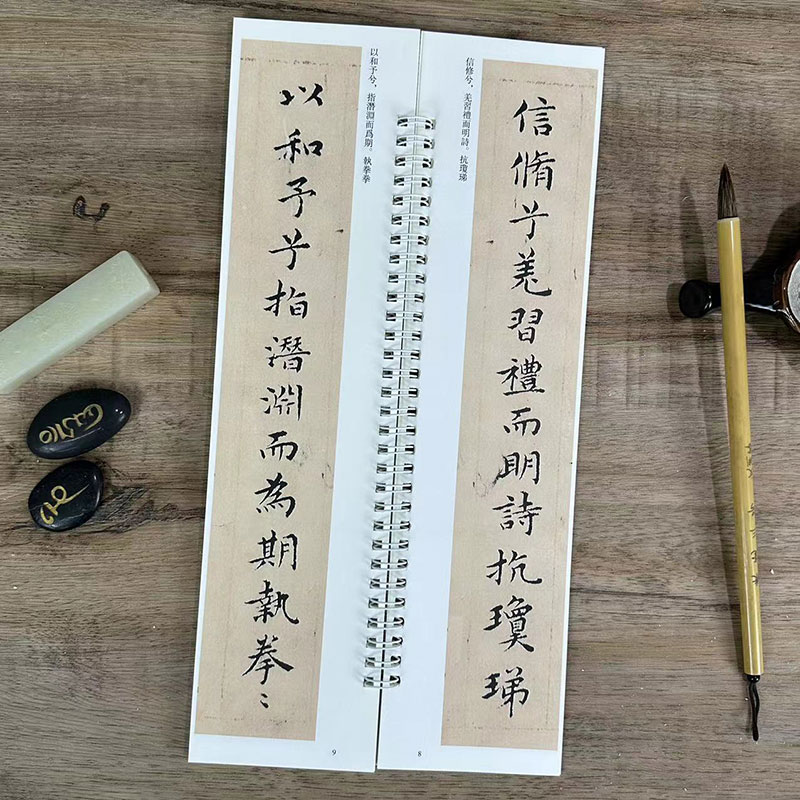 信脩兮羌習禮而明詩抗瓊珶
信修兮,羌習禮而明詩。抗瓊珶
8
以和予兮,指潛淵而爲期。執拳拳
以和予兮指潛淵而為期執拳〻
9